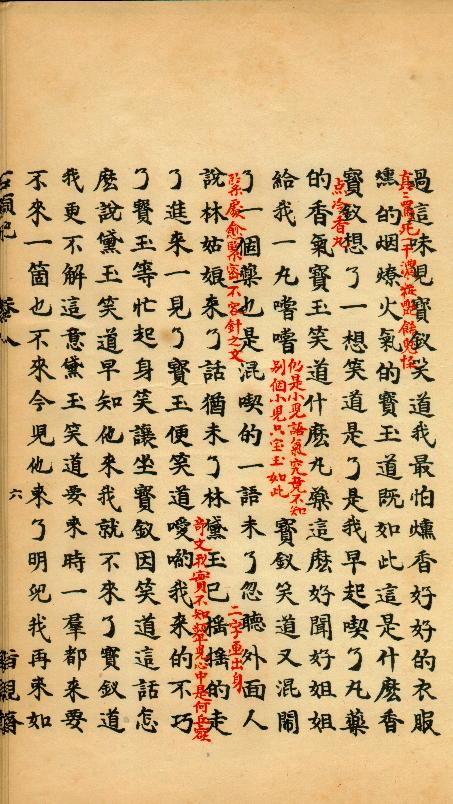 真真罵死一干濃粧艷飾鬼怪
過這味兒寶釵笑道我最怕燻香好好的衣服
燻的烟燎火氣的寶玉道既如此這是什麽香
点冷香丸
寶釵想了一想笑道是了是我早起喫了丸藥
的香氣寶玉笑道什麽丸藥這麽好聞好姐姐
給我一丸嚐嚐
仍是小兒語氣究竟不知
別個小兒只宝玉如此
寶釵笑道又混鬧
緊處愈緊密不容針之文
了一個藥也是混喫的一語未了忽聽外面人
二字畫出身
說林姑娘來了話猶未了林黛玉已搖搖的走
奇文我實不知顰兒心中是何丘壑
了進來一見了寶玉便笑道噯喲我來的不巧
了寶玉等忙起身笑讓坐寶釵因笑道這話怎
麽說黛玉笑道早知他來我就不來了寶釵道
我更不解這意黛玉笑道要來時一羣都來要
不來一箇也不來今兒他來了明兒我再來如
石頭記
卷八
六
脂硯齋